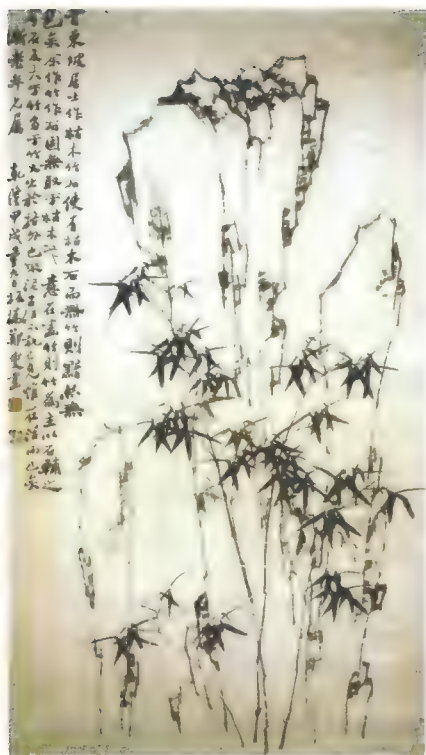 昔東坡居士作枯木竹石使有枯木石而無竹則黯然無
色矣余作竹作石固無取于枯木也意在畫竹則竹為主以石輔之
今石反大于竹多于竹又出於格外也不泥古法不執己見惟在活而已矣
老年兄屬 乾隆甲戌重九板橋鄭燮畫